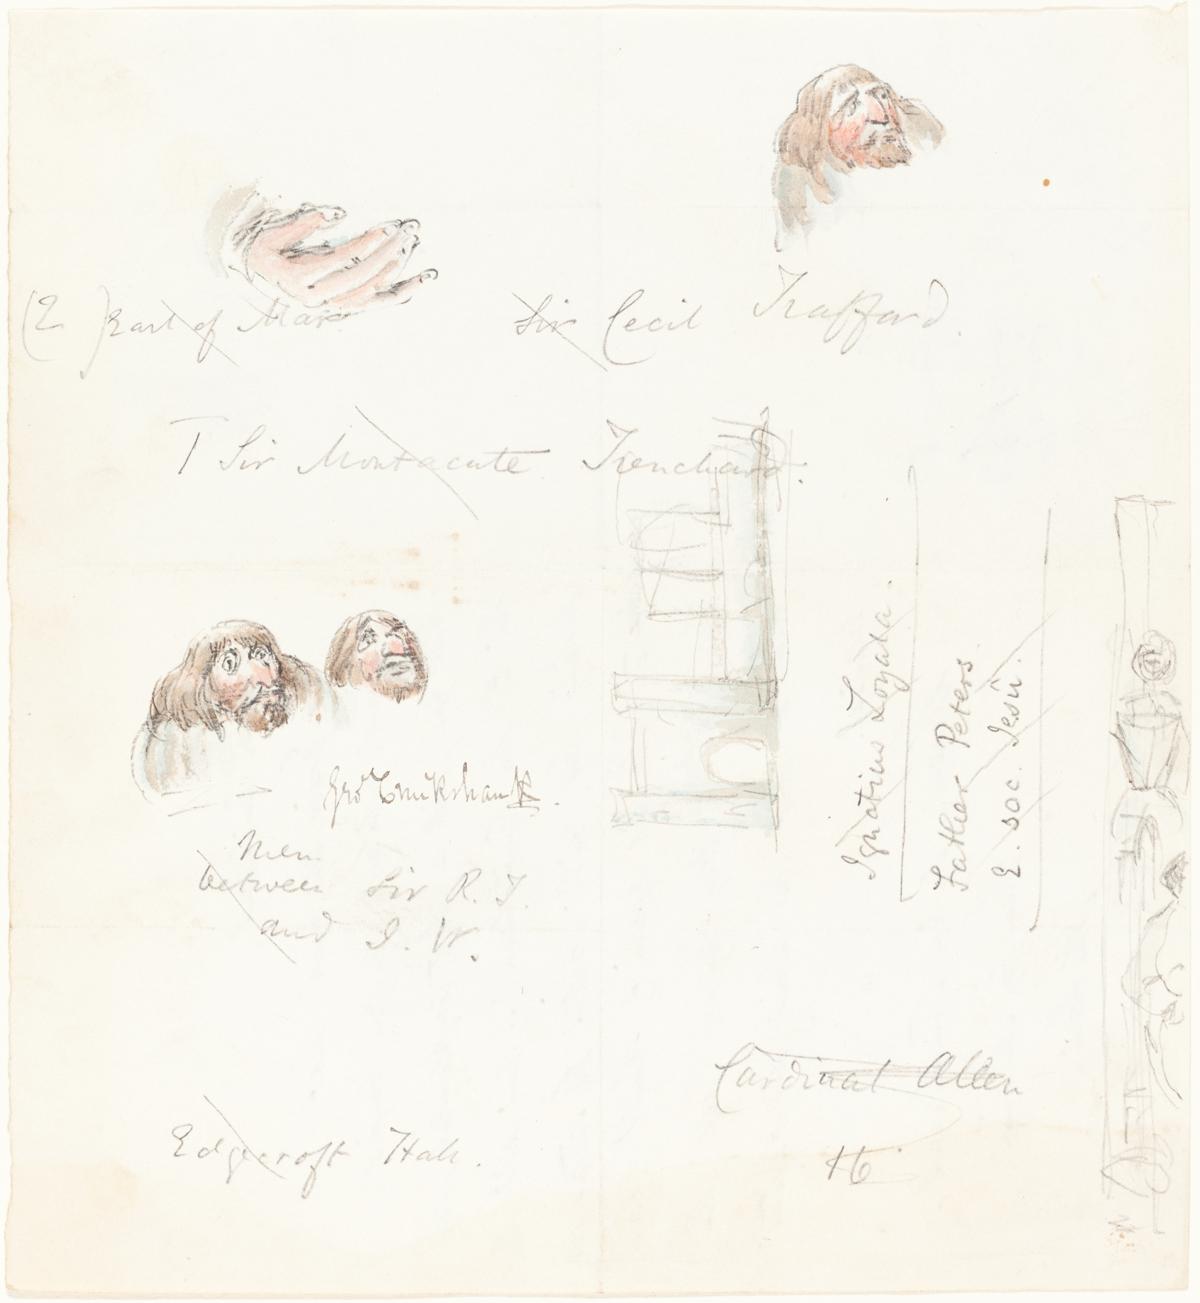 (E ) Earl of Mar
Sir Cecil Trafford.
T Sir Montacute Trenchard.
Geo Cruikshank.
Men
between Sir R. T.
and I. W.
Ignatius Loyala.
Father Peters.
E. soc. Jesû.
Cardinal Allen
Edgecroft Hall.